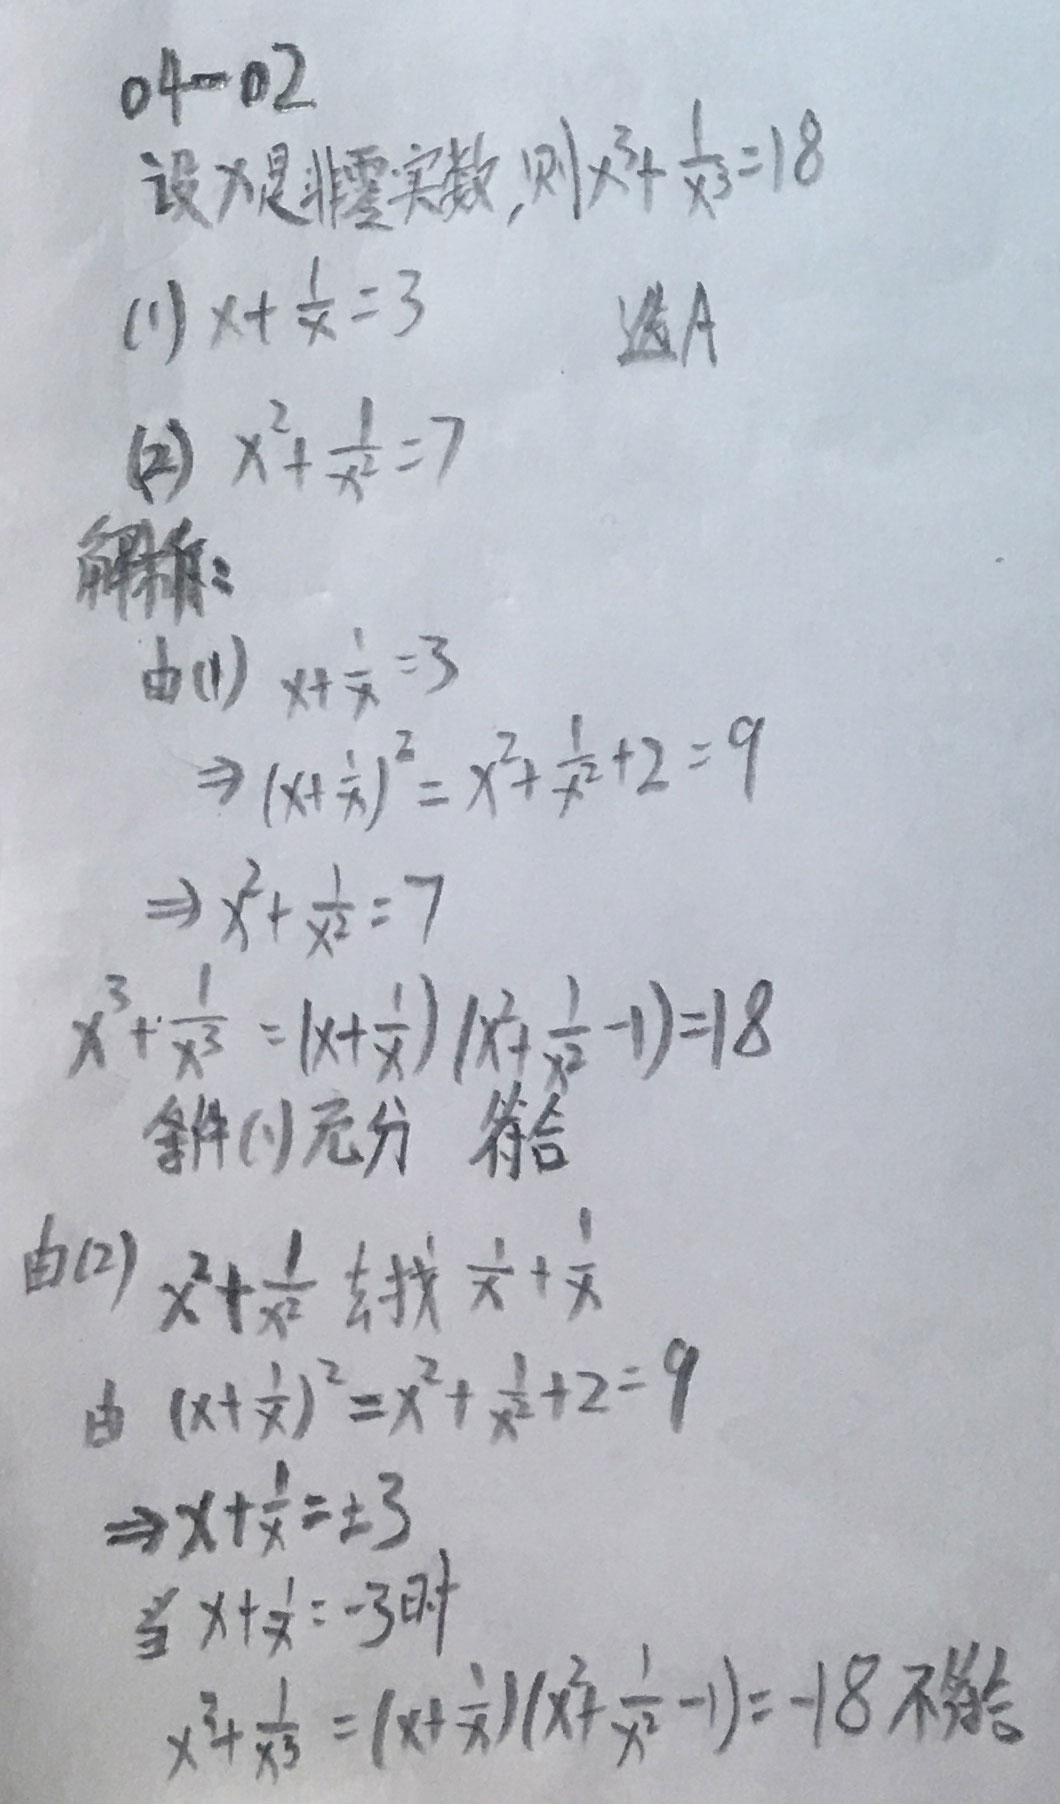 04-02
设x是非零实数,则x³+1/x³=18
(1) x+1/x=3 选A
(2) x²+1/x²=7
解释:
由(1) x+1/x=3
⇒(x+1/x)²=x²+1/x²+2=9
⇒x²+1/x²=7
x³+1/x³=(x+1/x)(x²+1/x²-1)=18
条件(1)充分 符合
由(2) x²+1/x² 去找 1/x+1/x
由 (x+1/x)²=x²+1/x²+2=9
⇒x+1/x=±3
当 x+1/x=-3时
x³+1/x³=(x+1/x)(x²+1/x²-1)=-18 不符合